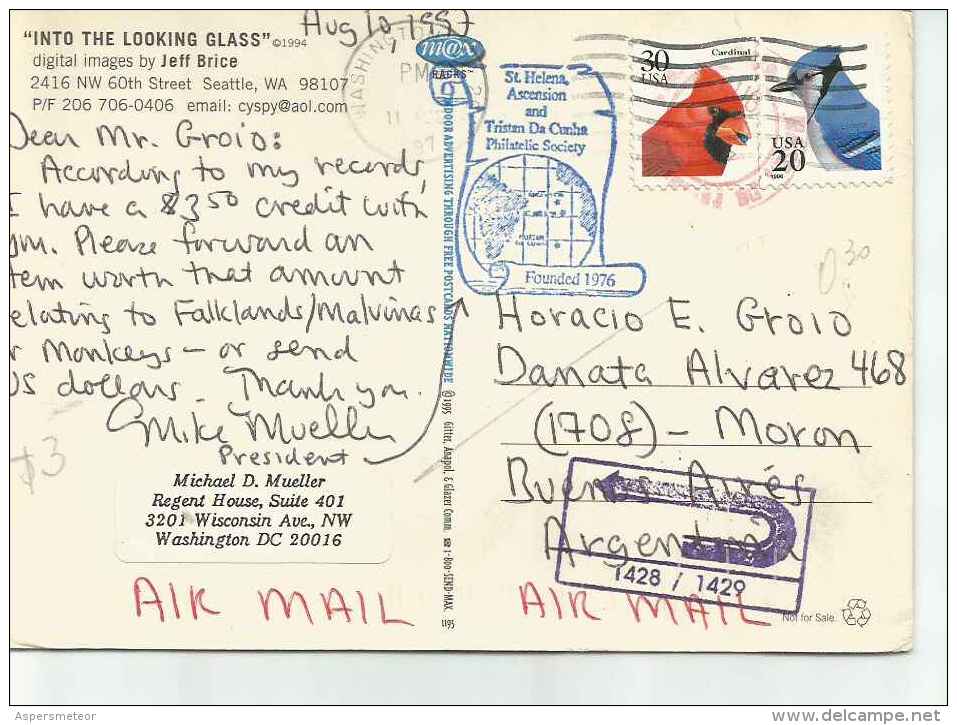 Aug 10, 1997
"INTO THE LOOKING GLASS" ©1994
digital images by Jeff Brice
2416 NW 60th Street Seattle, WA 98107
P/F 206 706-0406 email: cyspy@aol.com
Dear Mr. Groio:
According to my records,
I have a $3.50 credit with
you. Please forward an
item worth that amount
relating to Falklands/Malvinas
or Monkeys - or send
US dollars. Thank you.
Mike Mueller
President
$3
Michael D. Mueller
Regent House, Suite 401
3201 Wisconsin Ave., NW
Washington DC 20016
AIR MAIL
WASHINGTON
PM
11
97
m@x
RACKS™
OUTDOOR ADVERTISING THROUGH FREE POSTCARDS NATIONWIDE ©1995 Glitter, Anapol, & Glazer Comm. ☎ 1-800-SEND-MAX. 1195
St. Helena,
Ascension
and
Tristan Da Cunha
Philatelic Society
Founded 1976
30
USA
Cardinal
USA
20
1996
0.30
Horacio E. Groio
Danata Alvarez 468
(1708) - Moron
Buenos Aires
Argentina
1428 / 1429
AIR MAIL
Not for Sale.
Aspersmeteor
http://www.delcampe.net